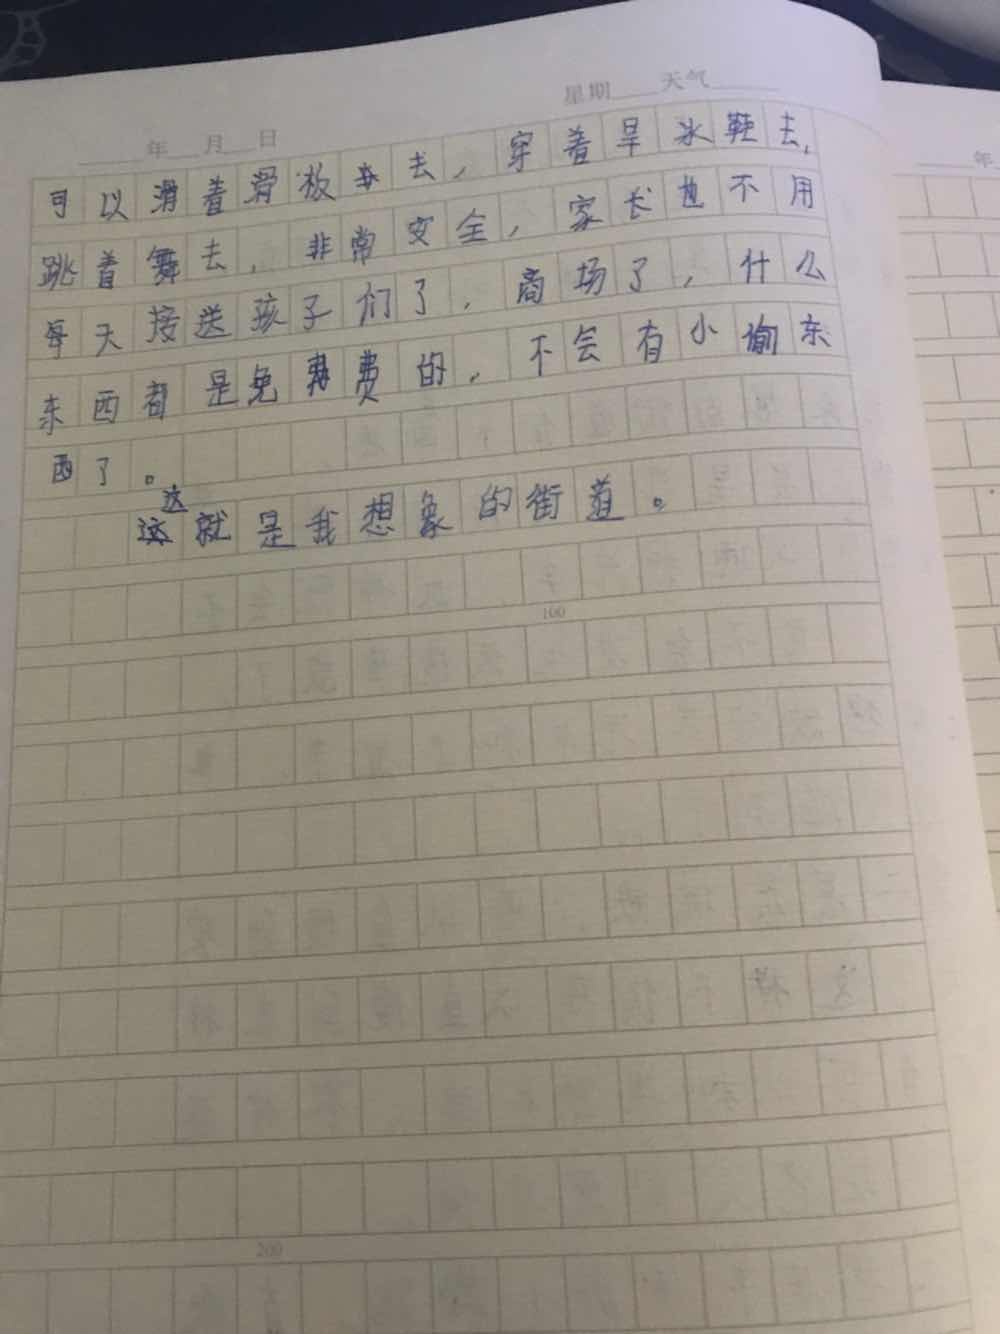 星期 天气
年 月 日
可以滑着滑板去,穿着旱冰鞋去,
跳着舞去,非常安全,家长也不用
每天接送孩子们了,商场了,什么
东西都是免费的,不会有小偷东
西了。
这就是我想象的街道。
100
200
年